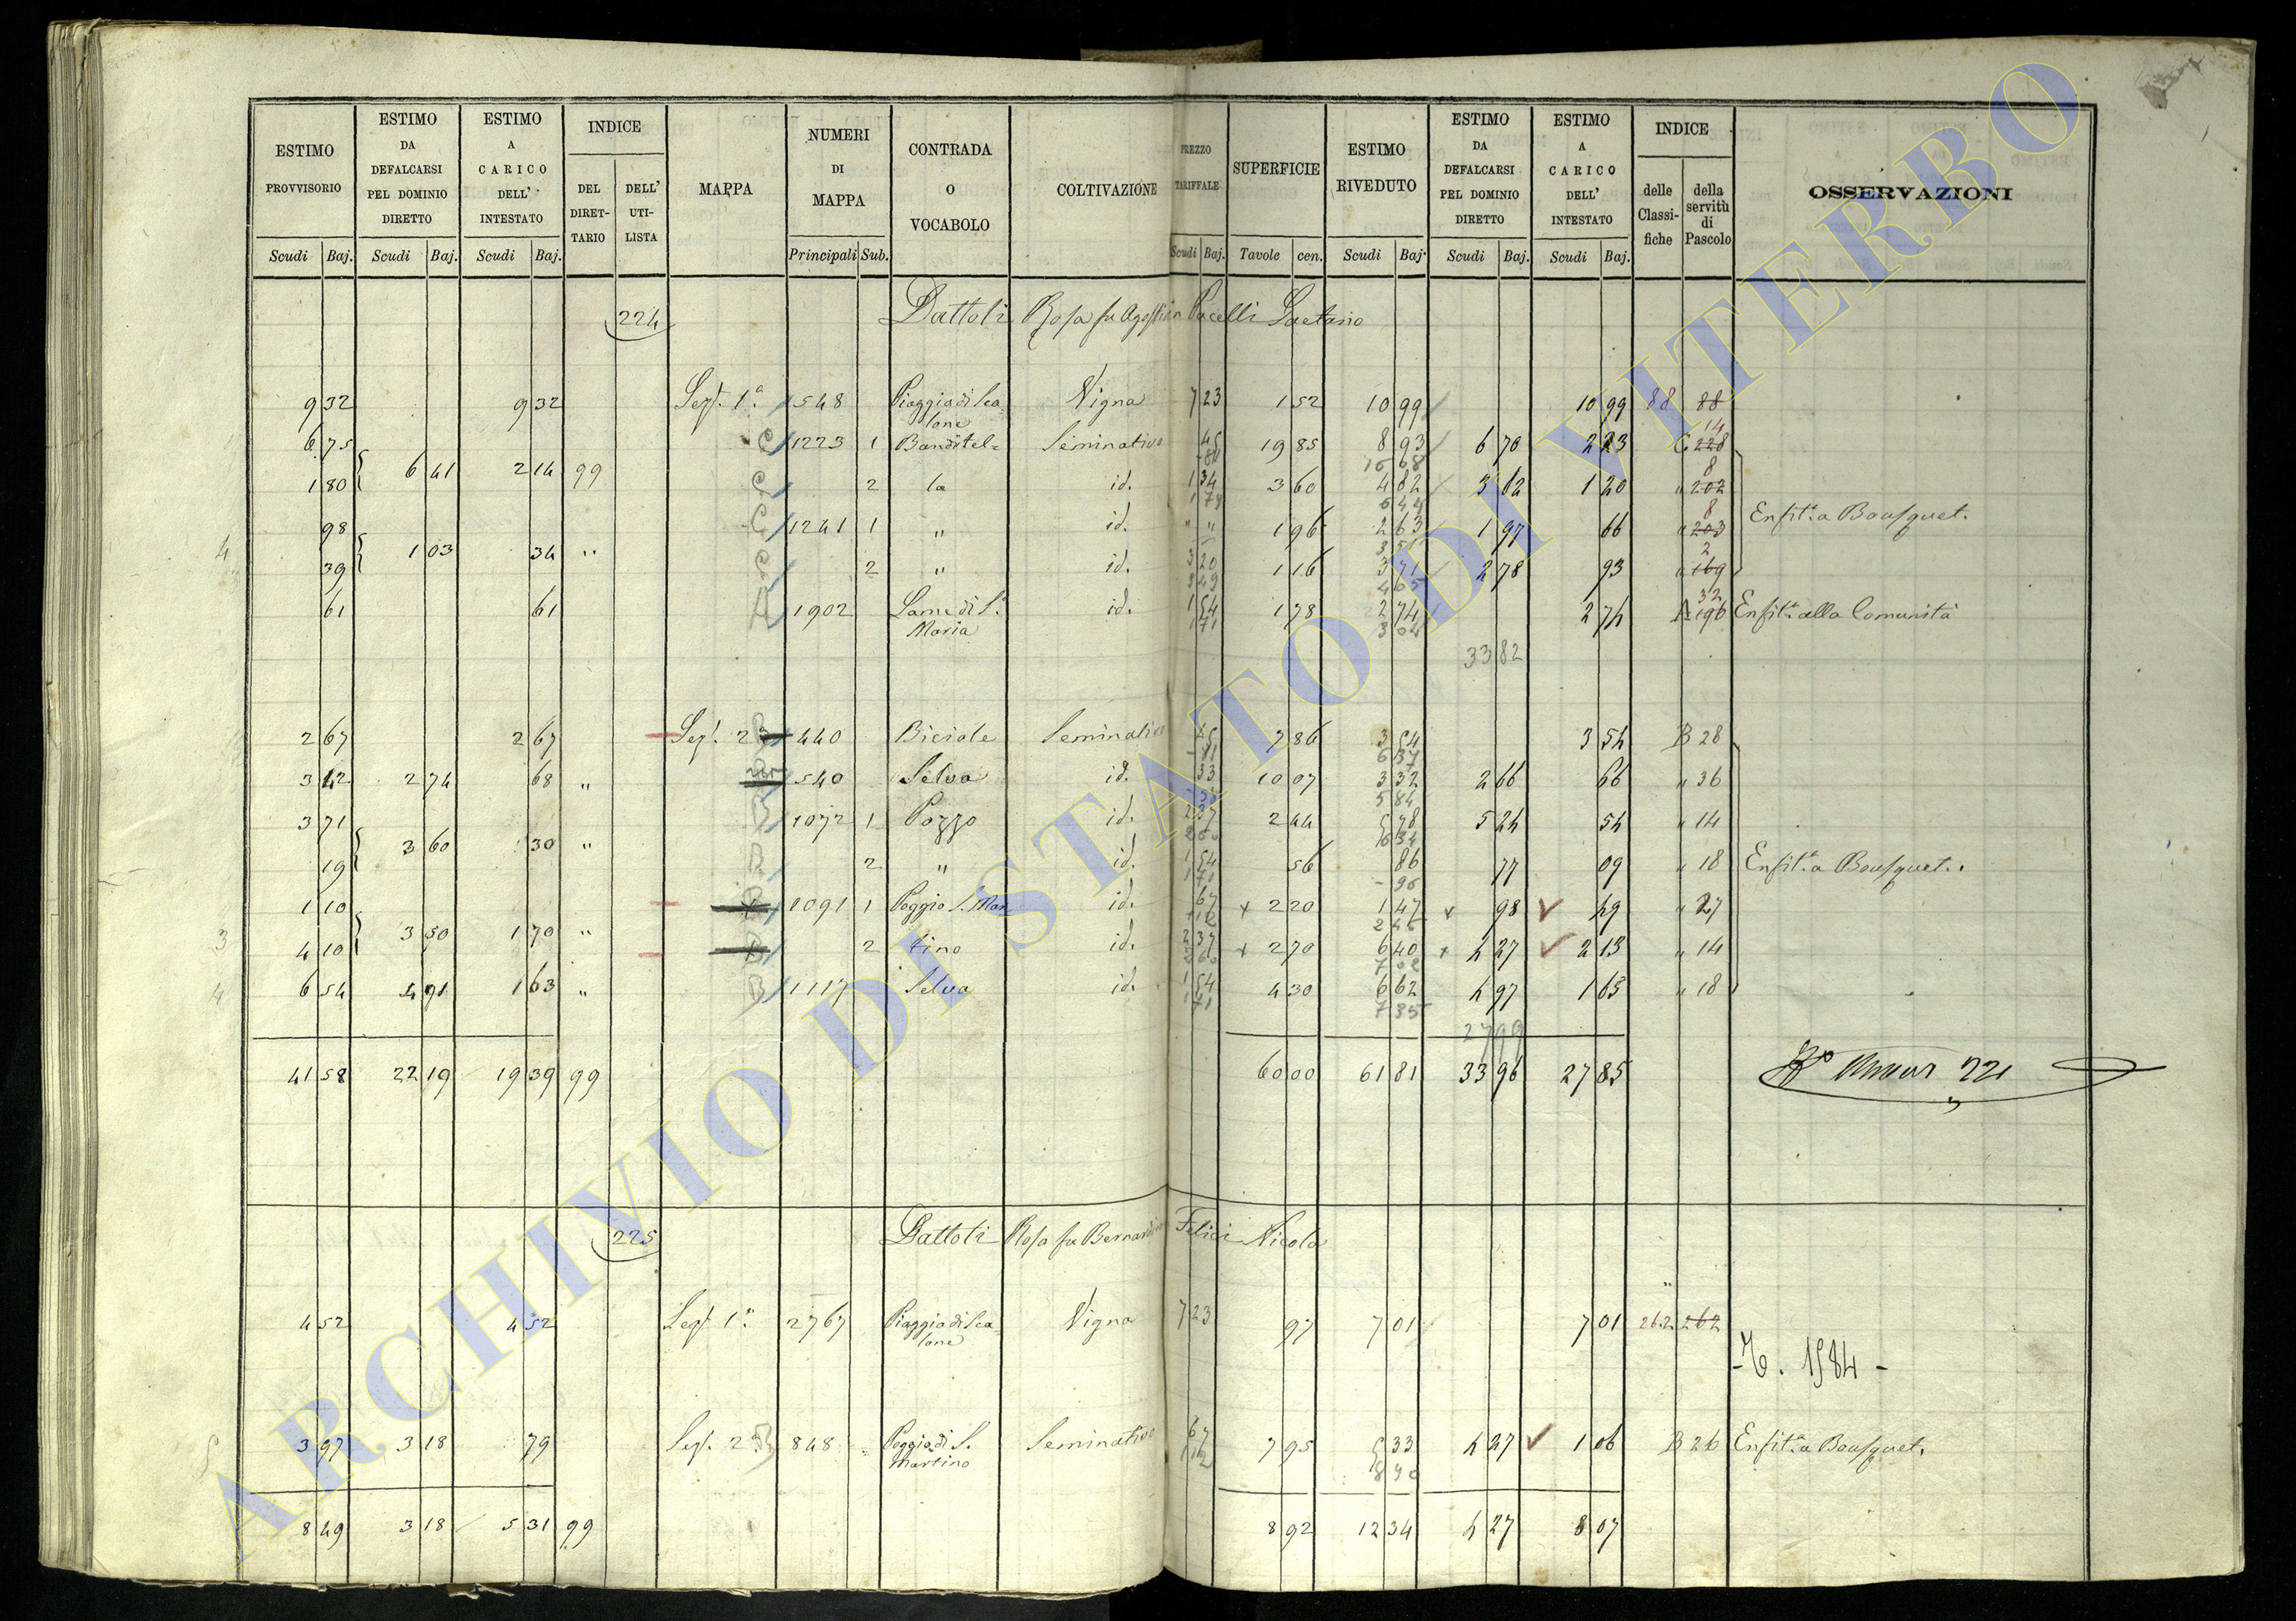 ESTIMO PROVVISORIO Scudi Baj.
ESTIMO DA DEFALCARSI PEL DOMINIO DIRETTO Scudi Baj.
ESTIMO A CARICO DELL' INTESTATO Scudi Baj.
INDICE DEL DIRETTARIO DELL' UTILISTA
MAPPA
NUMERI DI MAPPA Principali Sub.
CONTRADA O VOCABOLO
COLTIVAZIONE
PREZZO TARIFFALE Scudi Baj.
SUPERFICIE Tavole cen.
ESTIMO RIVEDUTO Scudi Baj.
ESTIMO DA DEFALCARSI PEL DOMINIO DIRETTO Scudi Baj.
ESTIMO A CARICO DELL' INTESTATO Scudi Baj.
INDICE delle Classifiche della servitù di Pascolo
OSSERVAZIONI
224 Dattoli Rosa fu Agostino Pacelli Gaetano
9 32 9 32 Sez. 1ª 1548 Piaggia di Sca=lone Vigna 7 23 1 52 10 99 10 99 88 88
6 75 C 1223 1 Banditel= Seminativo 45 19 85 8 93 6 70 2 23 C 228 14
6 41 2 14 99
1 80 C 2 la id. 1 34 3 60 4 82 3 62 1 20 " 202 8
98 C 1241 1 " id. " " 1 96 2 63 1 97 66 " 203 8 Enfit. a Bousquet.
4 1 03 34 "
39 C 2 " id. 3 20 1 16 3 71 2 78 93 " 169 2
61 61 A 1902 Lame di S. Maria id. 1 54 1 78 2 74 2 74 A 196 32 Enfit. alla Comunità
33 82
2 67 2 67 Sez. 2ª 440 Biciole Seminativo 45 7 86 3 54 3 54 B 28
3 42 2 74 68 " 540 Selva id. 33 10 07 3 32 2 66 66 " 36
3 71 B 1072 1 Pozzo id. 2 37 2 44 5 78 5 24 54 " 14
3 60 30 "
19 B 2 " id. 1 54 56 86 77 09 " 18 Enfit. a Bousquet.
1 10 1091 1 Poggio S. Mar id. 67 2 20 1 47 98 49 " 27
3 3 50 1 70 "
4 10 2 tino id. 2 37 2 70 6 40 4 27 2 13 " 14
4 6 54 4 91 1 63 " B 1117 Selva id. 1 54 4 30 6 62 4 97 1 65 " 18
27 99
41 58 22 19 19 39 99 60 00 61 81 33 96 27 85 221
225 Dattoli Rosa fu Bernardino Felici Nicola
4 52 4 52 Sez. 1ª 2767 Piaggia di Sca=lone Vigna 7 23 97 7 01 7 01 262 262
1584 -
3 97 3 18 79 Sez. 2ª B 848 Poggio di S. Martino Seminativo 67 7 95 5 33 4 27 1 06 B 26 Enfit. a Bousquet.
8 49 3 18 5 31 99 8 92 12 34 4 27 8 07
ARCHIVIO DI STATO DI VITERBO